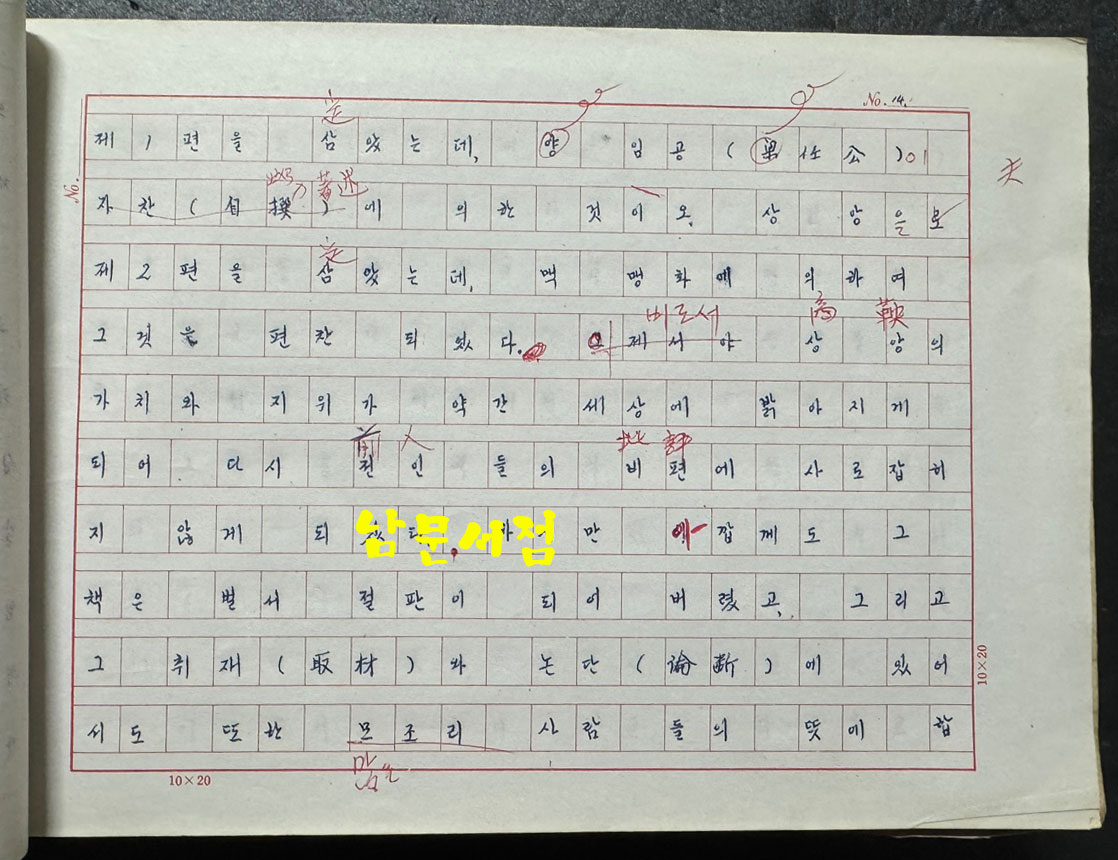 No. 14.
定
제 1 편을 삼았는데, 양 임공(梁任公)이
著述
자찬(自撰)에 의한 것이오, 상앙을로
定
제 2 편을 삼았는데, 맥맹화에 의하여
비로서 商 鞅
그것을 편찬 되었다. 그제서야 상앙의
가치와 지위가 약간 세상에 밝아지게
前人 批評
되어 다시 전인들의 비편에 사로잡히
지 않게 되 만 애깝게도 그
남문서점
책은 벌서 절판이 되어 버렸고, 그리고
그 취재(取材)와 논단(論斷)에 있어
서도 또한 모조리 사람들의 뜻에 합
10×20
10×20
No.
夫